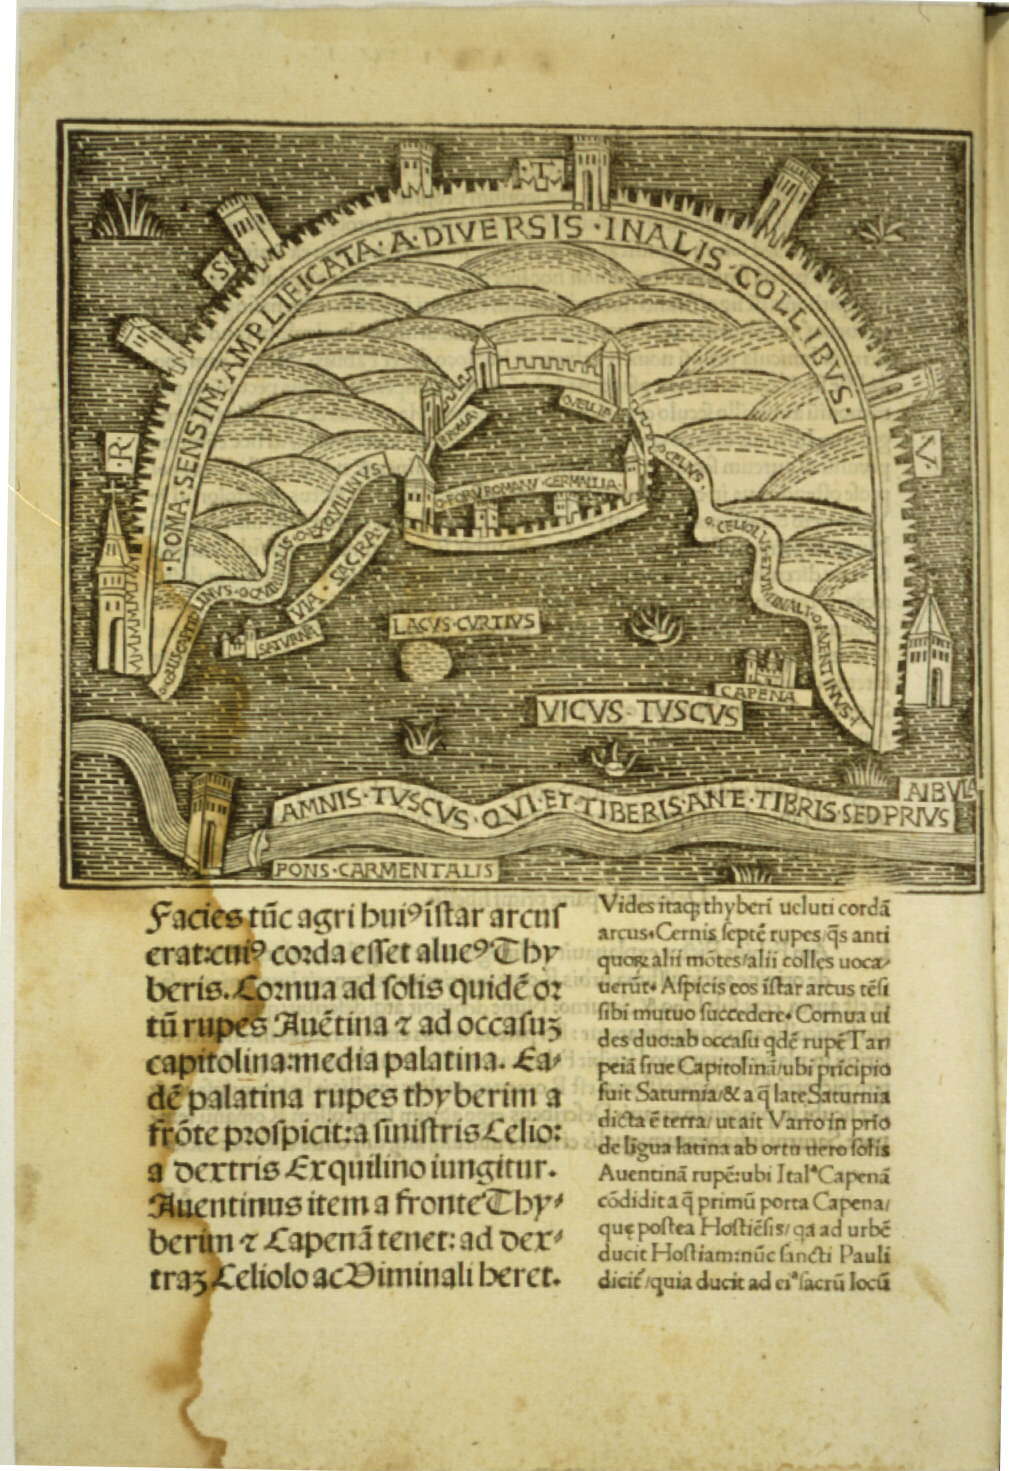 ·T·
·S·
·R·
·V·
·ROMA·SENSIM·AMPLIFICATA·A·DIVERSIS·INALIS·COLLIBVS·
ROMA·
O·VELLIA
O·FORV ROMANV·GERMALLIA·
O·EXQVILINVS·
O·CELIVS·
VIA·SACRA·
SATVRNA
LACVS·CVRTIVS
CAPENA
VICVS·TVSCVS
AMNIS·TVSCVS·QVI·ET·TIBERIS·ANTE·TIBRIS·SED PRIVS
ALBVLA
PONS·CARMENTALIS
Facies tũc agri huiꝰ ĩstar arcus
erat:cuiꝰ corda esset alueꝰ Thy
beris. Cornua ad solis quidẽ or
tũ rupes Auẽtina ⁊ ad occasuꝫ
capitolina:media palatina. Ea-
dẽ palatina rupes thyberim a
frõte prospicit:a sinistris Celio:
a dextris Exquilino iungitur.
Auentinus item a fronte Thy-
berim ⁊ Capenã tenet: ad dex-
traꝫ Celiolo ac Viminali heret.
Vides itaqꝫ thyberĩ ueluti cordã
arcus. Cernis septẽ rupes/q̃s anti
quoꝝ alii mõtes/alii colles uoca-
uerũt. Aspicis eos ĩstar arcus tẽsi
sibi mutuo succedere. Cornua ui
des duo:ab occasu qdẽ rupẽ Tar
peiã siue Capitolinã/ubi prĩcipio
fuit Saturnia/& a q̃ late Saturnia
dicta ẽ terra/ut ait Varro in prio
de lĩgua latina ab ortu uero solis
Auentinã rupẽ:ubi Italꝰ Capenã
cõdidit a q̃ primũ porta Capena/
quę postea Hostiẽsis/qa ad urbẽ
ducit Hostiam:nũc sancti Pauli
dicit̃/quia ducit ad eiꝰ sacrũ locũ